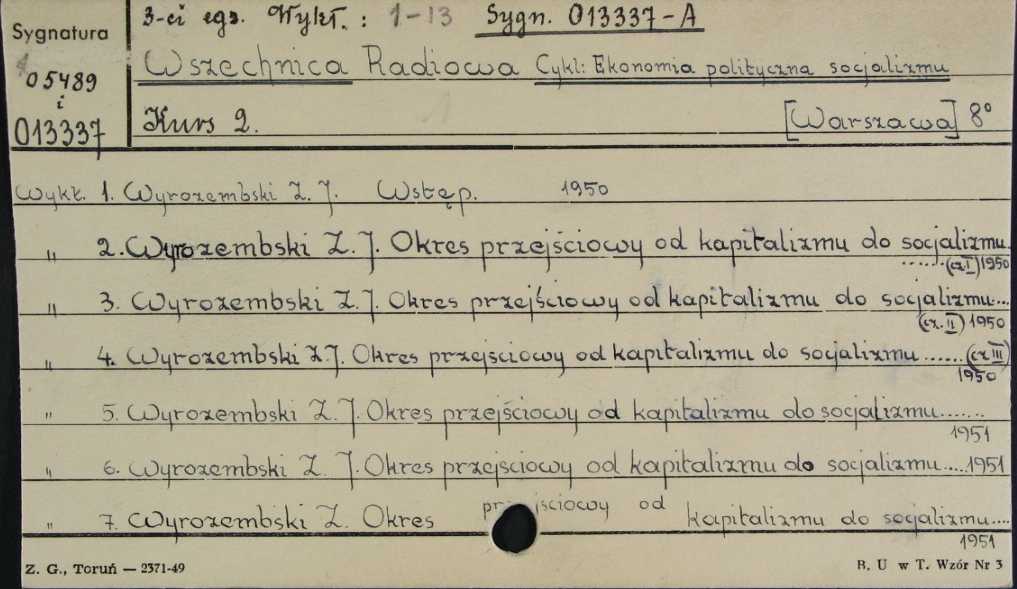 3-ci egz. Wykł.: 1-13 Sygn. 013337-A
Sygnatura
05489
i
013337
Wszechnica Radiowa Cykl: Ekonomia polityczna socjalizmu
Kurs 2. [Warszawa] 8°
Wykł. 1. Wyrozembski Z. J. Wstęp. 1950
" 2. Wyrozembski Z. J. Okres przejściowy od kapitalizmu do socjalizmu.
......(cz. I) 1950
" 3. Wyrozembski Z. J. Okres przejściowy od kapitalizmu do socjalizmu...
(cz. II) 1950
" 4. Wyrozembski Z. J. Okres przejściowy od kapitalizmu do socjalizmu ...... (cz III)
1950
" 5. Wyrozembski Z. J. Okres przejściowy od kapitalizmu do socjalizmu.......
1951
" 6. Wyrozembski Z. J. Okres przejsciowy od kapitalizmu do socjalizmu....1951
" 7. Wyrozembski Z. Okres przejsciowy od kapitalizmu do socjalizmu....
1951
Z. G., Toruń — 2371-49 B. U w T. Wzór Nr 3